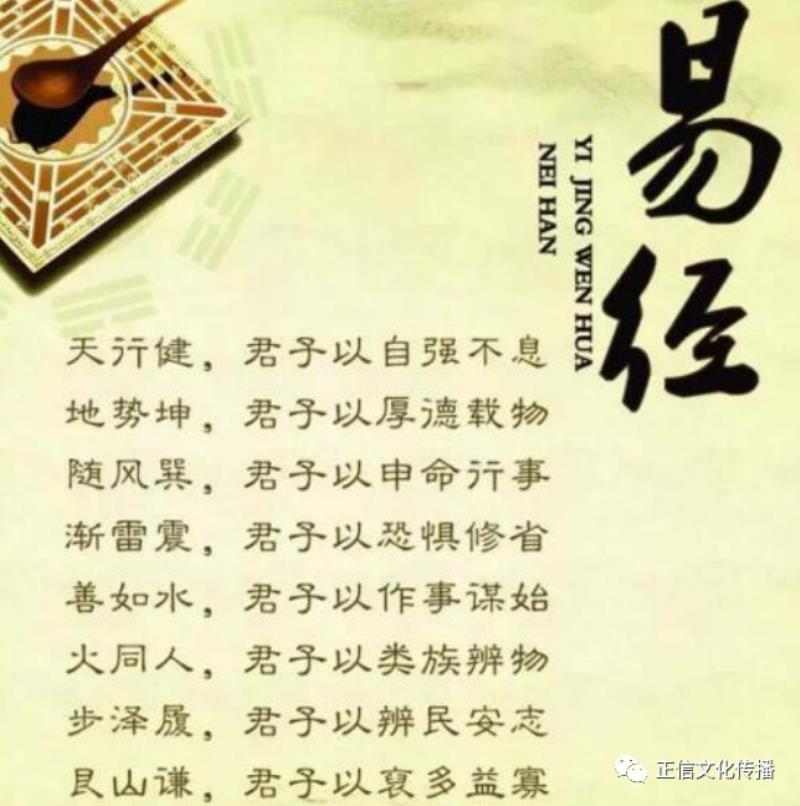 易经
YI JING WEN HUA
NEI HAN
天行健，君子以自强不息
地势坤，君子以厚德载物
随风巽，君子以申命行事
渐雷震，君子以恐惧修省
善如水，君子以作事谋始
火同人，君子以类族辨物
步泽履，君子以辨民安志
艮山谦，君子以裒多益寡
正信文化传播